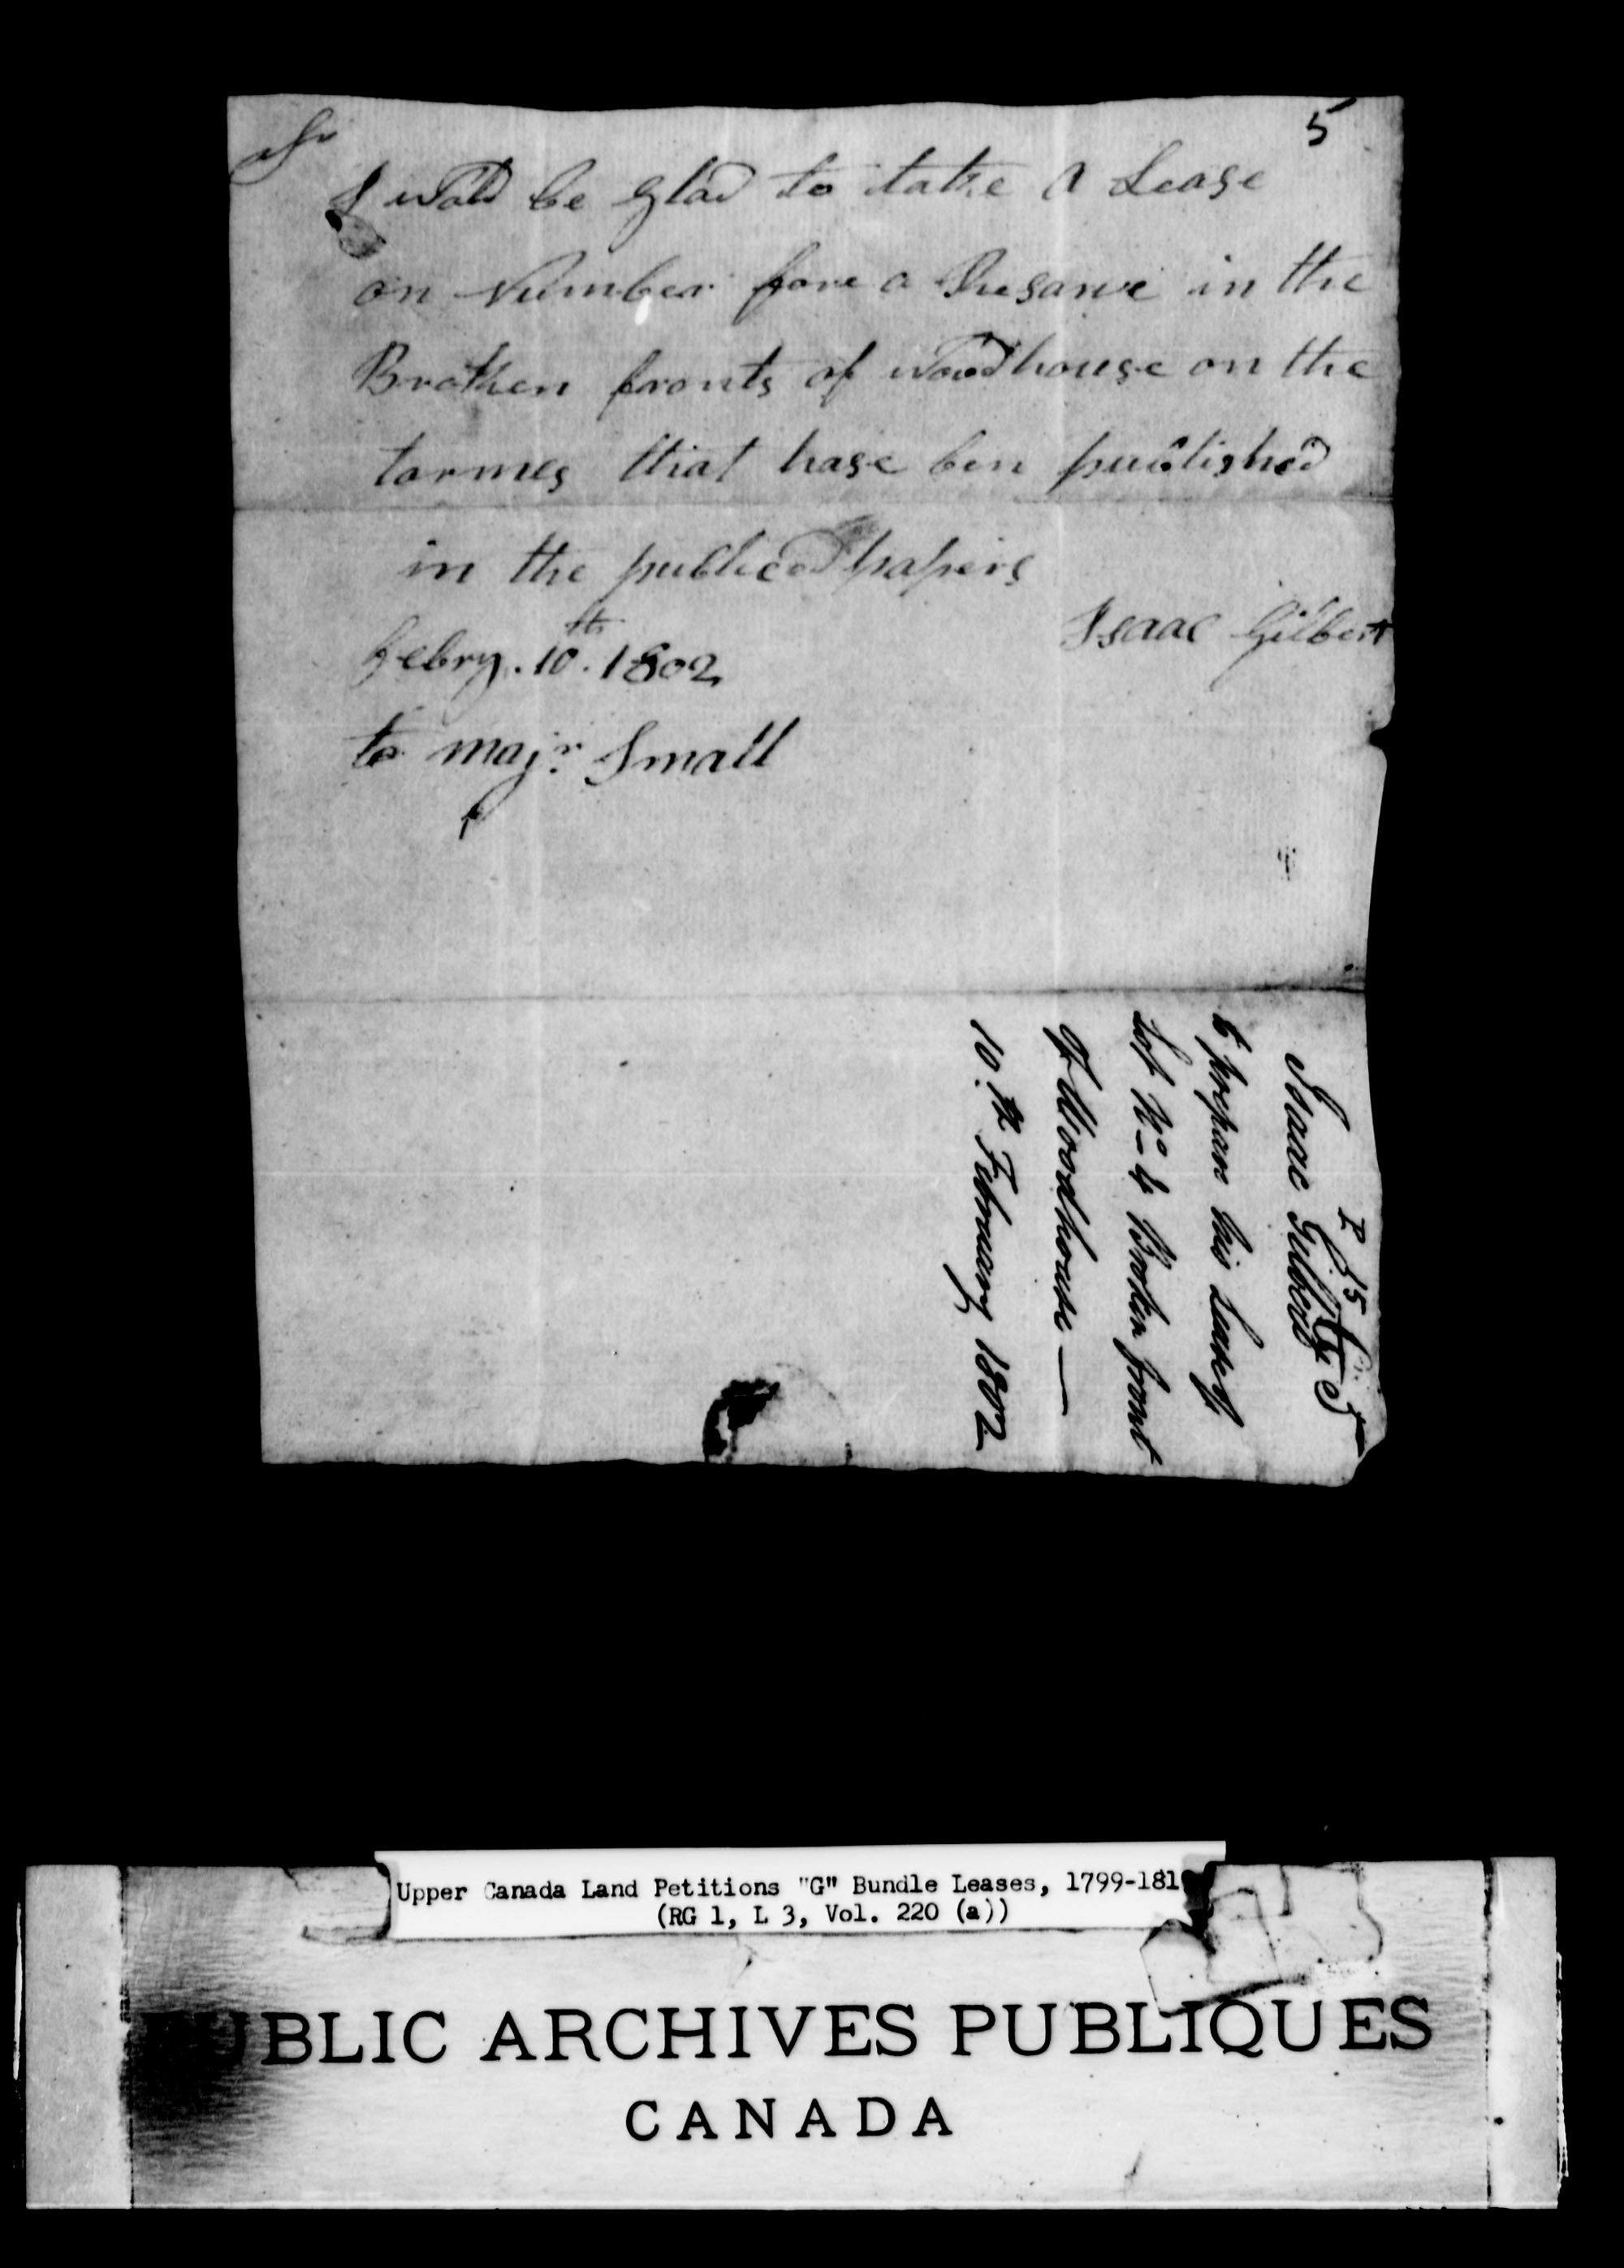 5
Sr
I wold be glad to take a Lease
on Number fore a Resarve in the
Broken fronts of woodhouse on the
tarmes that hase ben published
in the publick papers
Isaac Gilbert
Febry. 10th. 1802
to majr. Small
P 15
Isaac Gilbert
to prepare his Lease of
Lot No. 4 Broken front
of Woodhouse —
10th February 1802
Upper Canada Land Petitions "G" Bundle Leases, 1799-181
(RG 1, L 3, Vol. 220 (a))
PUBLIC ARCHIVES PUBLIQUES
CANADA